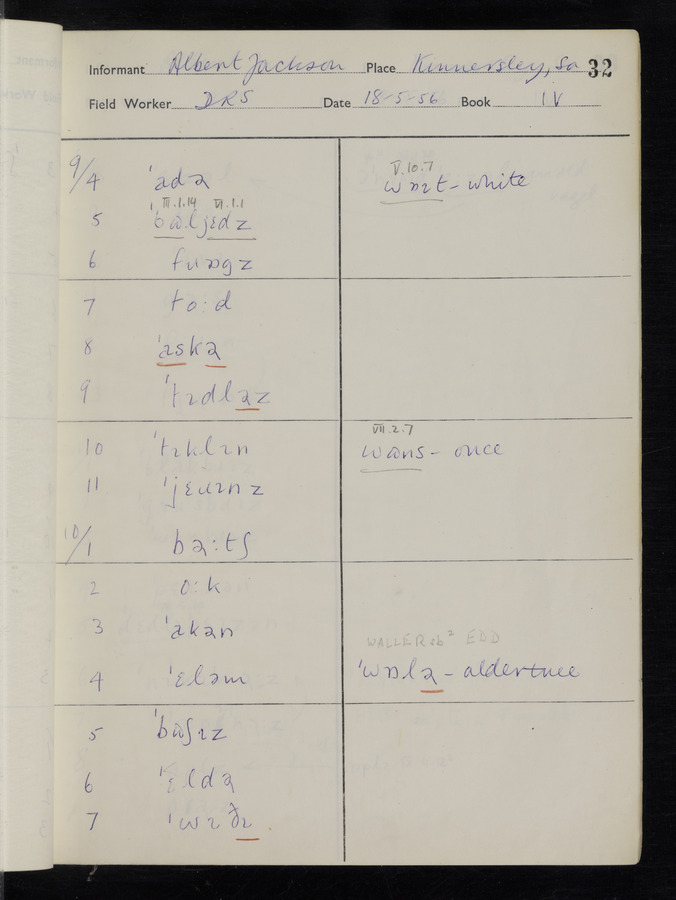 Informant Albert Jackson Place Kinnersley, Sa 32
Field Worker DRS Date 18-5-56 Book IV
V.10.7
9/4 ˈadə wɒɪt - white
III.1.14 VI.1.1
5
6 fɹɒgz
7 to:d
8 ˈaskə
9 ˈtadləz
VII.2.7
10 ˈtɪklɪn wɒns - once
11 ˈjɛɹɪnz
10/1 bə:tʃ
2 o:k
3 ˈakən
WALLER sb² EDD
4 ˈɛləm ˈwɒlə - aldertree
5 ˈbɷʃɪz
6 ˈɛldə
7 ˈwɪðɪ